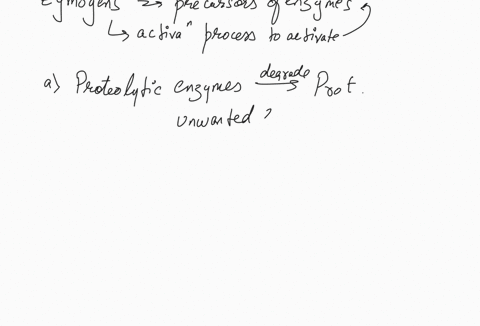 Zymogens → precursors of enzymes
↳ activaⁿ process to activate
a) Proteolytic enzymes degrade → Prot.
unwanted